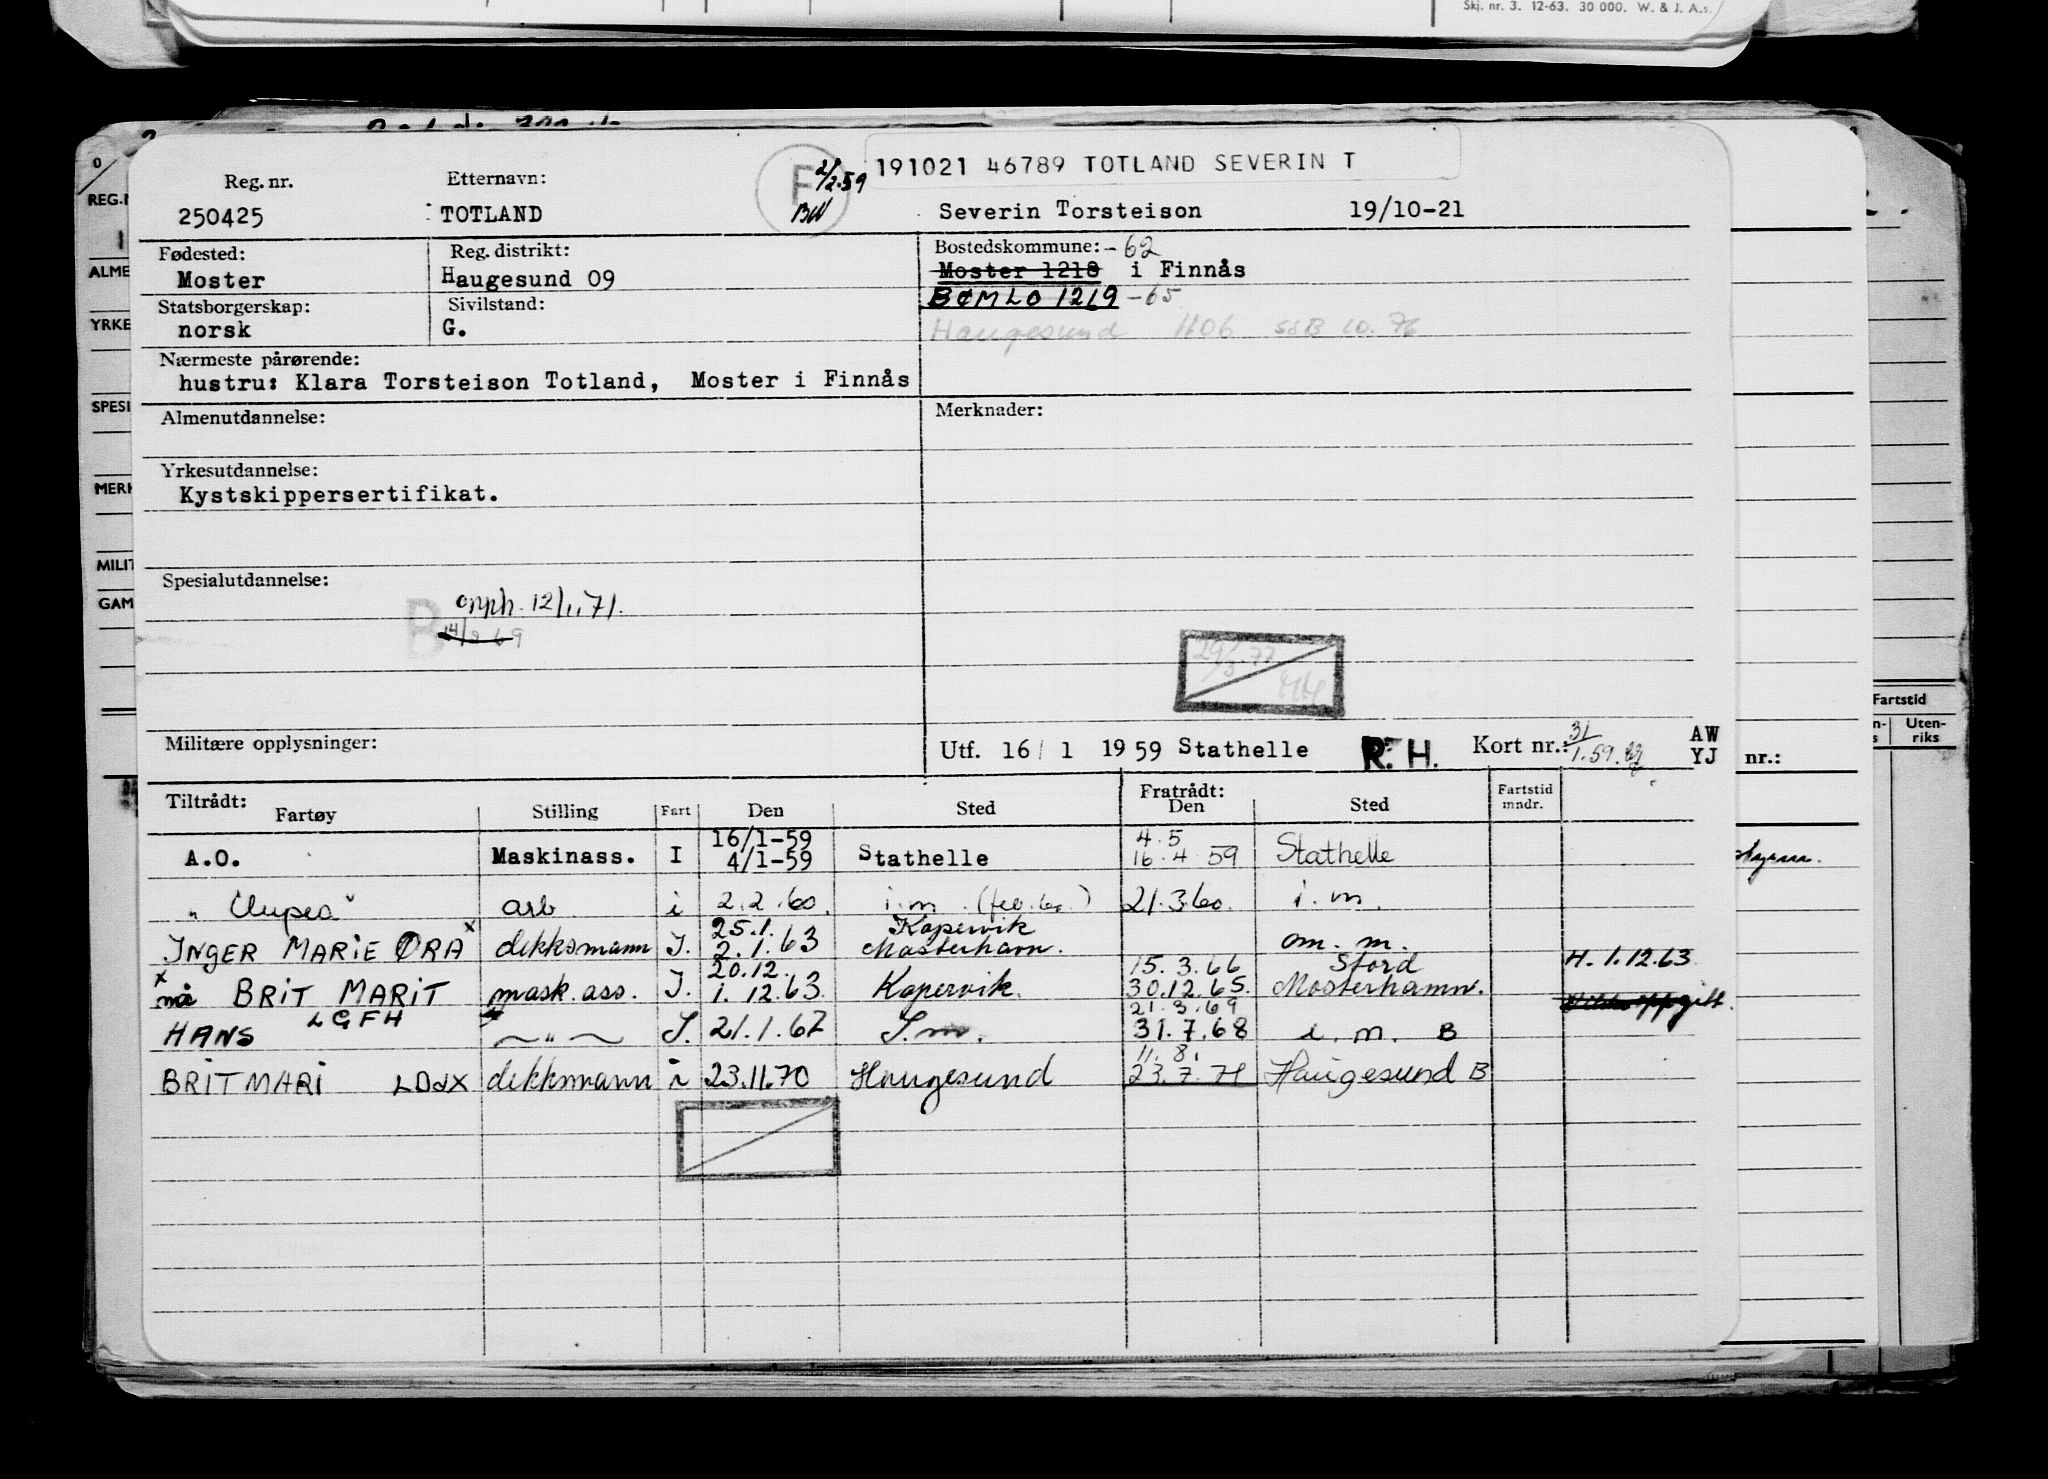 Skj. nr. 3. 12-63. 30 000. W. & J. A.s.
191021 46789 TOTLAND SEVERIN T
Reg. nr. Etternavn: F 2/2.59
250425 TOTLAND BW Severin Torsteison 19/10-21
Fødested: Reg. distrikt: Bostedskommune: -62
Moster Haugesund 09 Moster 1218 i Finnås
Statsborgerskap: Sivilstand: BØMLO 1219 -65
norsk G. Haugesund 1106 SSB 10. 76
Nærmeste pårørende:
hustru: Klara Torsteison Totland, Moster i Finnås
Almenutdannelse: Merknader:
Yrkesutdannelse:
Kystskippersertifikat.
Spesialutdannelse:
B 12/11.71.
14/2 69
29/3.77
Militære opplysninger: Utf. 16/ 1 1959 Stathelle R. H. Kort nr.: 31/1.59. AW
YJ nr.:
Tiltrådt: Fratrådt: Fartstid
Fartøy Stilling Fart Den Sted Den Sted mndr.
16/1-59 4.5
A.O. Maskinass. I 4/1-59 Stathelle 16.4 59 Stathelle
arb i 2.2.60. i.m. (feb. 60.) 21.3.60. i.m.
25.1. Kopervik
INGER MARIE ORA x dekksmann I. 2.1.63 Mosterhavn. om. m.
x 20.12. 15.3.66 Stord H. 1.12.63
nå BRIT MARIT mask. ass. I. 1.12.63 Kopervik. 30.12.65. Mosterhamn.
LGFH 21.3.69
HANS ~ " ~ I. 21.1.67 I.m. 31.7.68 i.m. B
11.8.
BRITMARI LDJX dekksmann i 23.11.70 Haugesund 23.7.71 Haugesund B
REG.N
ALME
YRKE
SPESI
MERK
MILIT
GAM
Fartstid
Uten-
riks